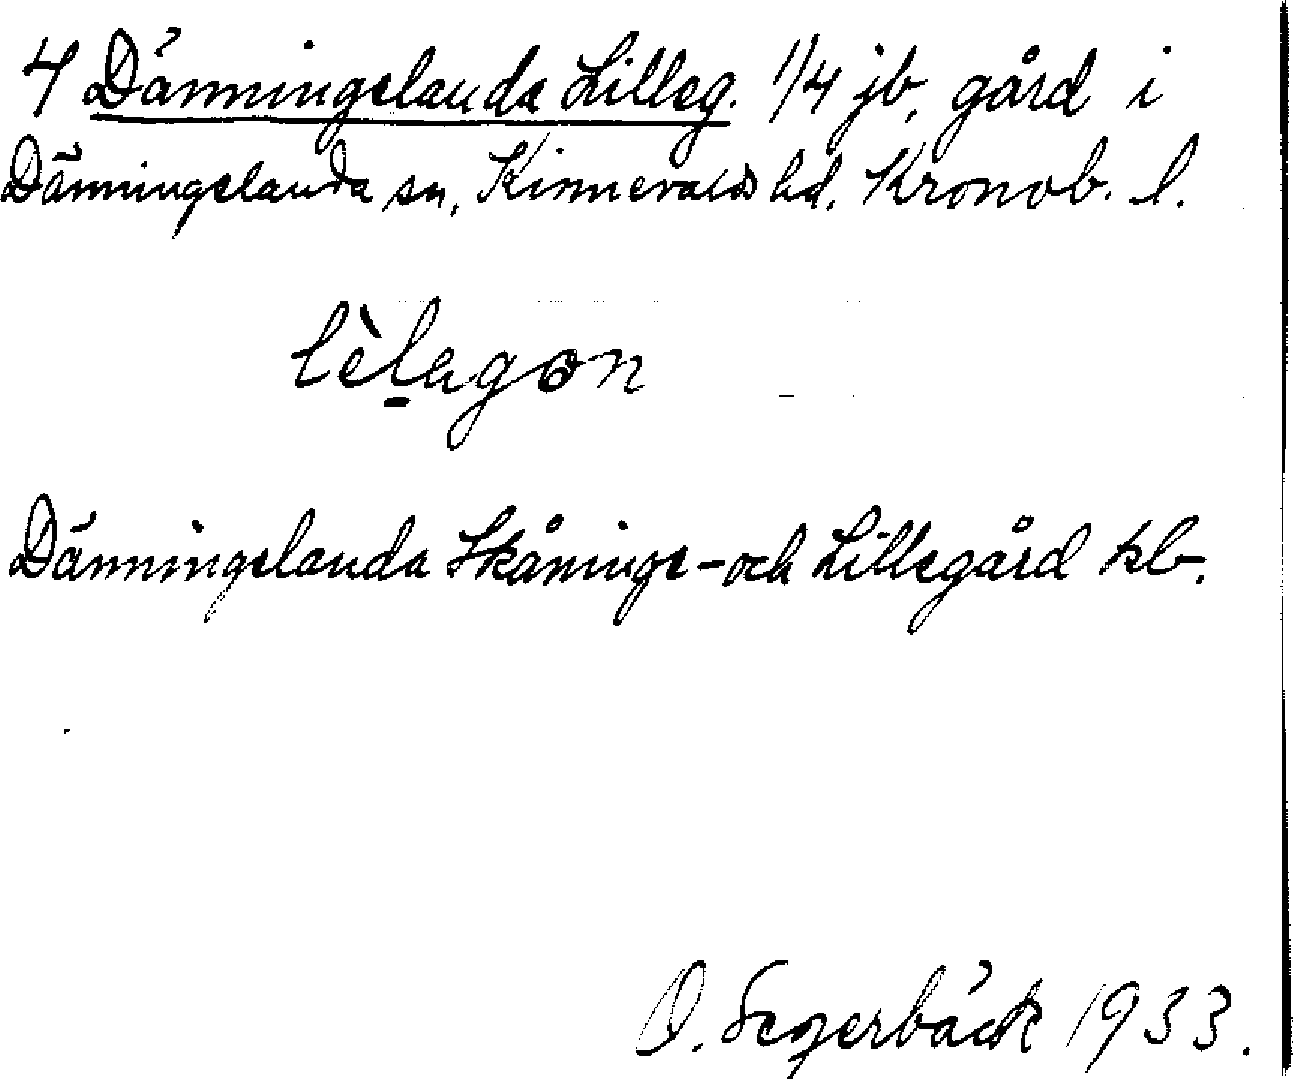 4 Dänningelanda Lilleg. 1/4 jb. gård i
Dänningelanda sn, Kinnevalds hd. Kronob. l.
lèlagon
Dänningelanda Skånings- och Lillegård kb.
O. Segerbäck 1933.